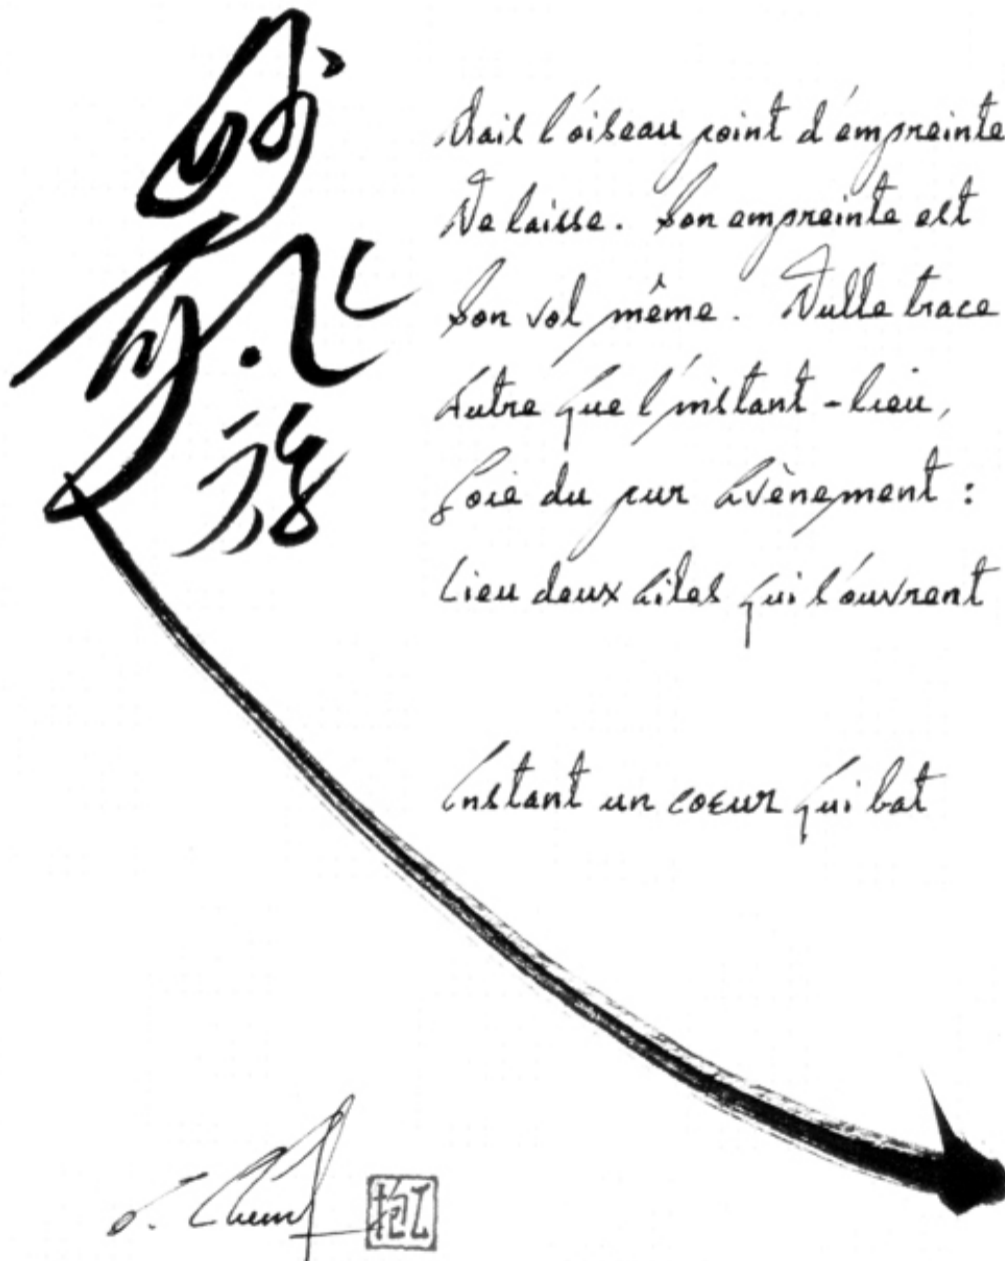 Mais l'oiseau point d'empreinte
Ne laisse. Son empreinte est
Son vol même. Nulle trace
Autre que l'instant-lieu,
Joie du pur Avènement :
Lieu deux Ailes qui s'ouvrent
Instant un coeur qui bat
F. Cheng